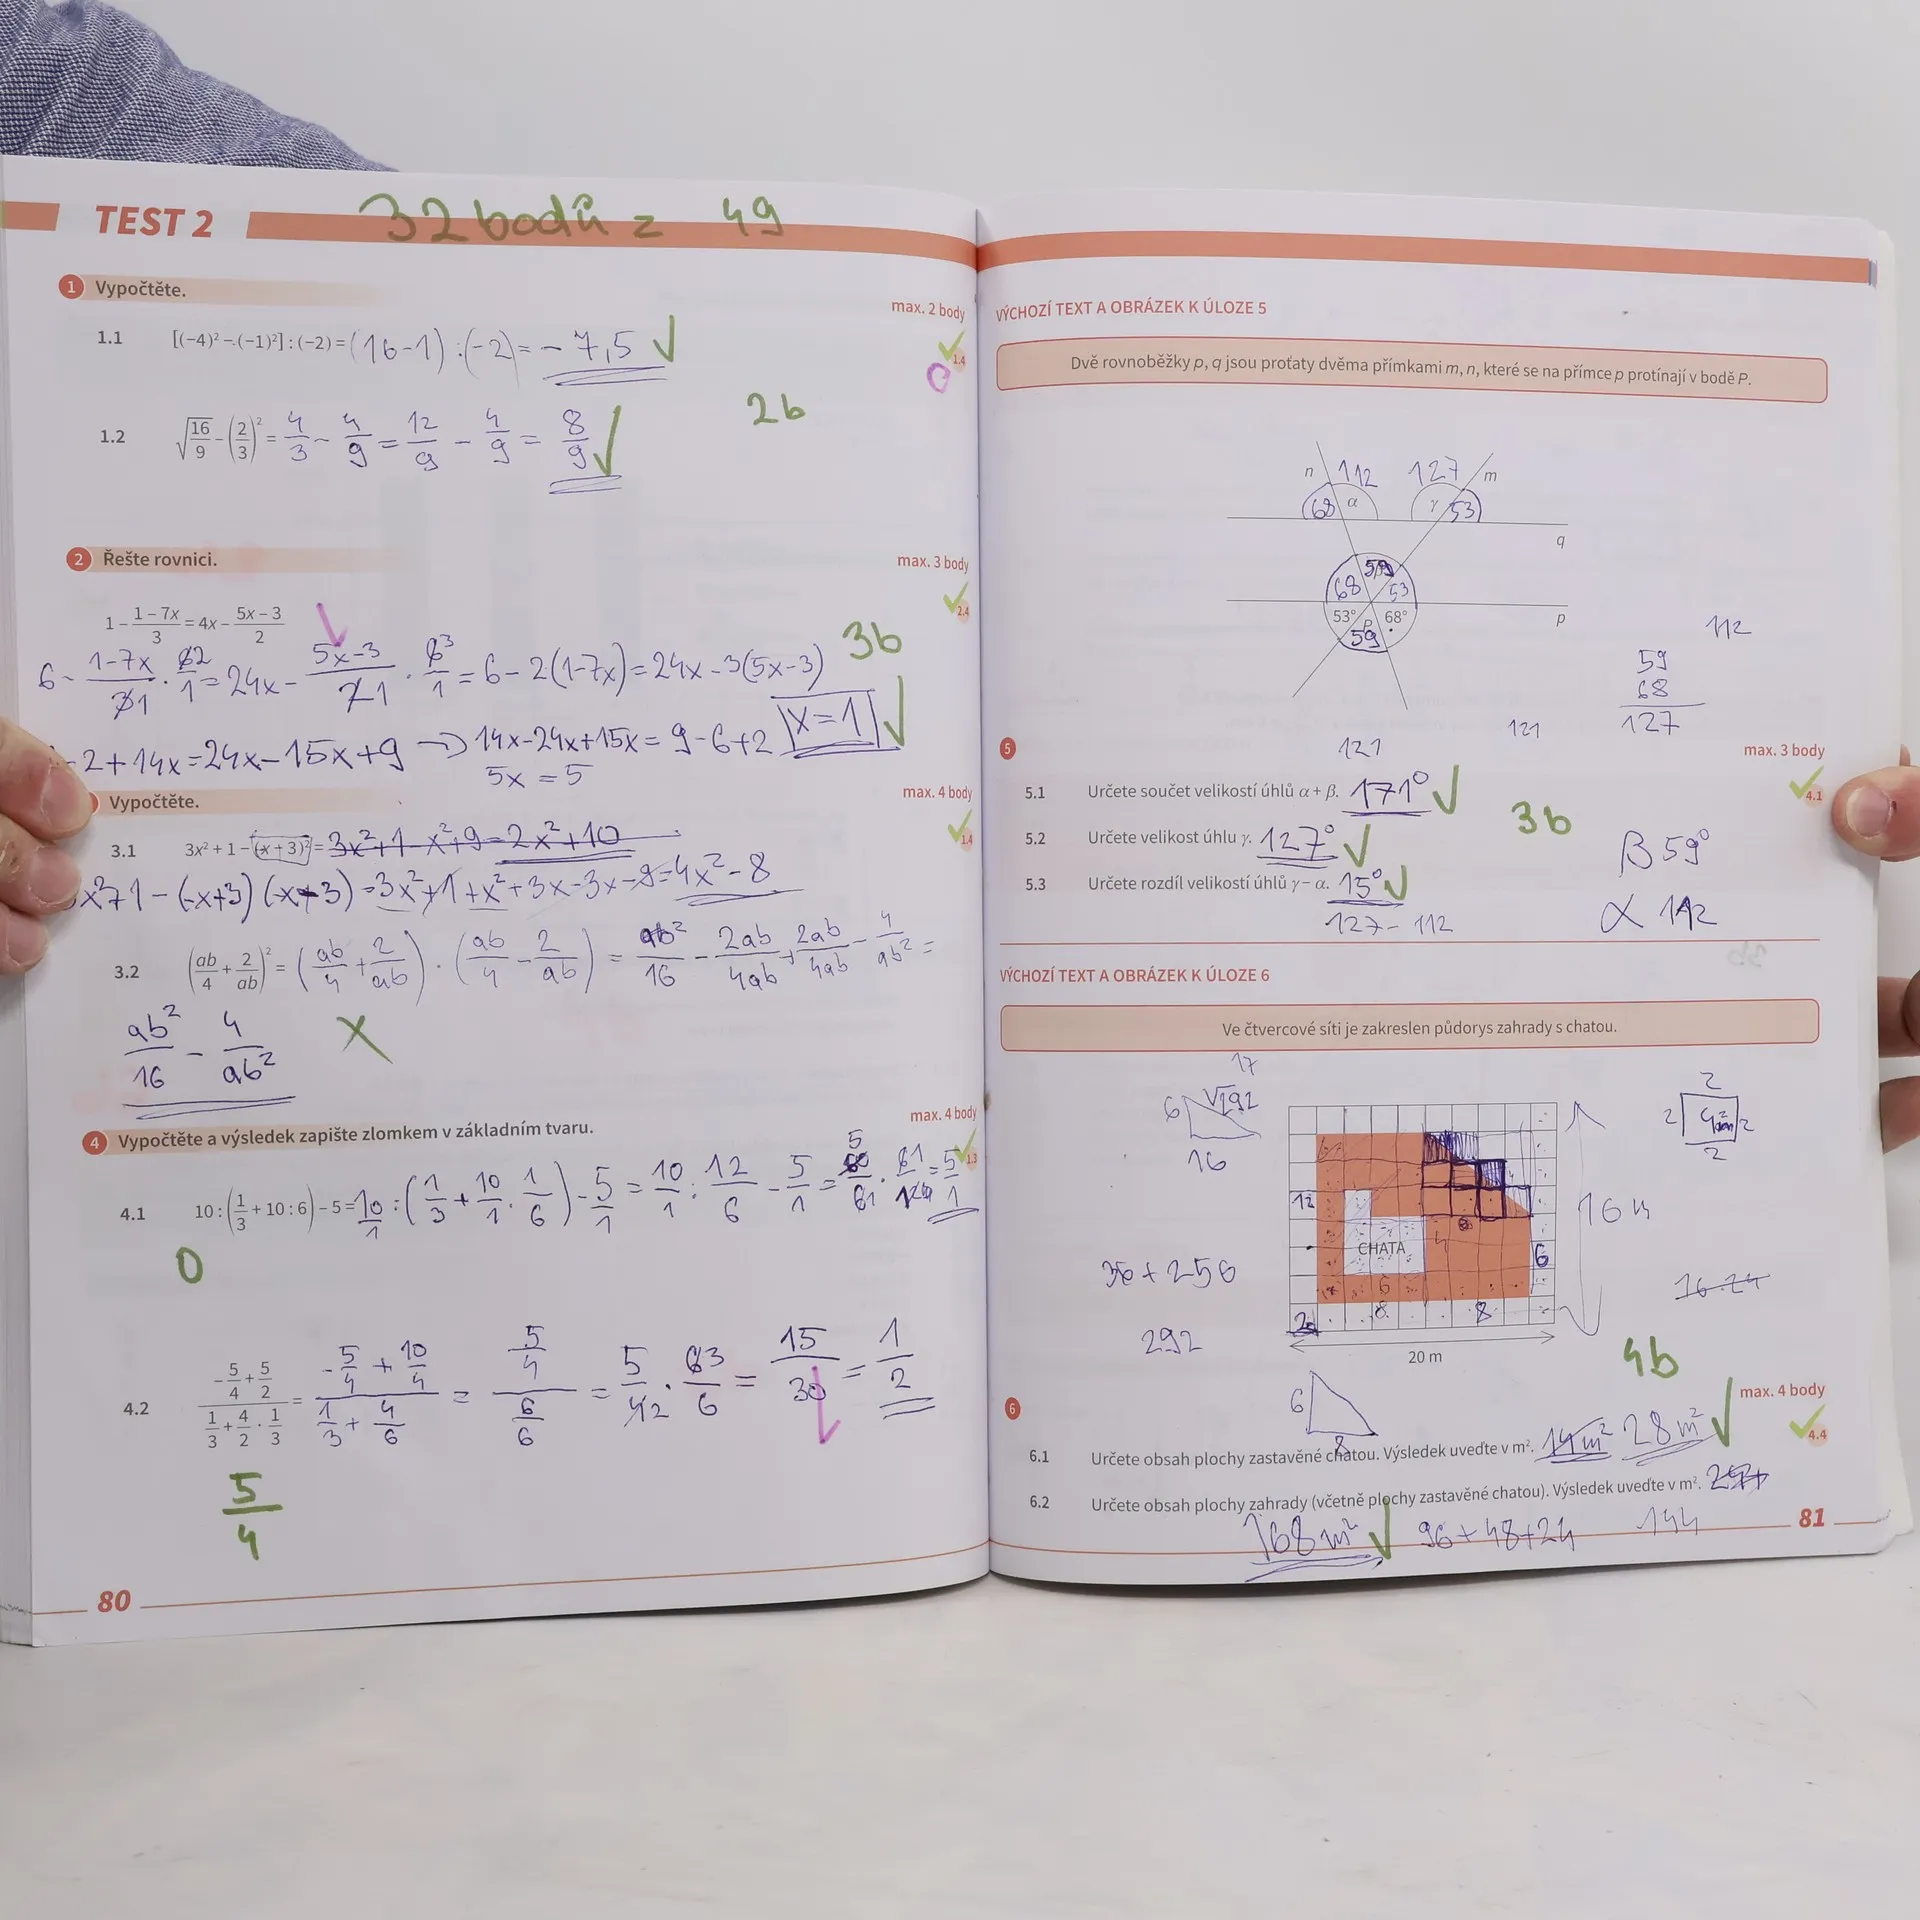 TEST 2 32 bodů z 49
1 Vypočtěte.
max. 2 body
1.1 [(−4)² − (−1)²] : (−2) = (16-1) : (-2) = - 7,5 ✓
1.4
0
2b
1.2 √16/9 − (2/3)² = 4/3 - 4/9 = 12/9 - 4/9 = 8/9 ✓
2 Řešte rovnici.
max. 3 body
2.4
1 − (1 − 7x)/3 = 4x − (5x − 3)/2
3b
6 - (1-7x)/31 · 62/1 = 24x - (5x-3)/21 · 63/1 = 6 - 2(1-7x) = 24x - 3(5x-3)
-2+14x=24x-15x+9 → 14x-24x+15x= 9-6+2 x=1 ✓
5x = 5
Vypočtěte.
max. 4 body
1.4
3.1 3x² + 1 − (x + 3)² = 3x²+1-x²+9=2x²+10
x²+1-(-x+3)(x+3)=3x²+1+x²+3x-3x-9=4x²-8
3.2 (ab/4 + 2/ab)² = (ab/4 + 2/ab) · (ab/4 - 2/ab) = ab²/16 - 2ab/4ab + 2ab/4ab - 4/ab² =
ab²/16 - 4/ab² X
max. 4 body
4 Vypočtěte a výsledek zapište zlomkem v základním tvaru.
1.3
4.1 10 : (1/3 + 10 : 6) − 5 = 10/1 : (1/3 + 10/1 · 1/6) - 5/1 = 10/1 : 12/6 - 5/1 = · 61 = 5/1
0
4.2 (−5/4 + 5/2)/(1/3 + 4/2 · 1/3) = (-5/4 + 10/4)/(1/3 + 4/6) = (5/4)/(6/6) = 5/42 · 63/6 = 15/30 = 1/2
5/4
80
VÝCHOZÍ TEXT A OBRÁZEK K ÚLOZE 5
Dvě rovnoběžky p, q jsou proťaty dvěma přímkami m, n, které se na přímce p protínají v bodě P.
n 112 127 m
68 α γ 53
q
59
68 53
53° P 68° p
59
112
59
68
127
121
121
5
max. 3 body
4.1
5.1 Určete součet velikostí úhlů α + β. 171° ✓
3b
5.2 Určete velikost úhlu γ. 127° ✓
β 59°
5.3 Určete rozdíl velikostí úhlů γ − α. 15° ✓
127 - 112
α 112
VÝCHOZÍ TEXT A OBRÁZEK K ÚLOZE 6
Ve čtvercové síti je zakreslen půdorys zahrady s chatou.
17
6 √292
16
2
2 4 2
2
12
16 m
CHATA 4
6
36 + 256
6
16·24
8 8
292
20 m
4b
6
8
6
max. 4 body
4.4
6.1 Určete obsah plochy zastavěné chatou. Výsledek uveďte v m². 14m² 28m² ✓
6.2 Určete obsah plochy zahrady (včetně plochy zastavěné chatou). Výsledek uveďte v m².
168m² ✓ 96+48+24 144
81